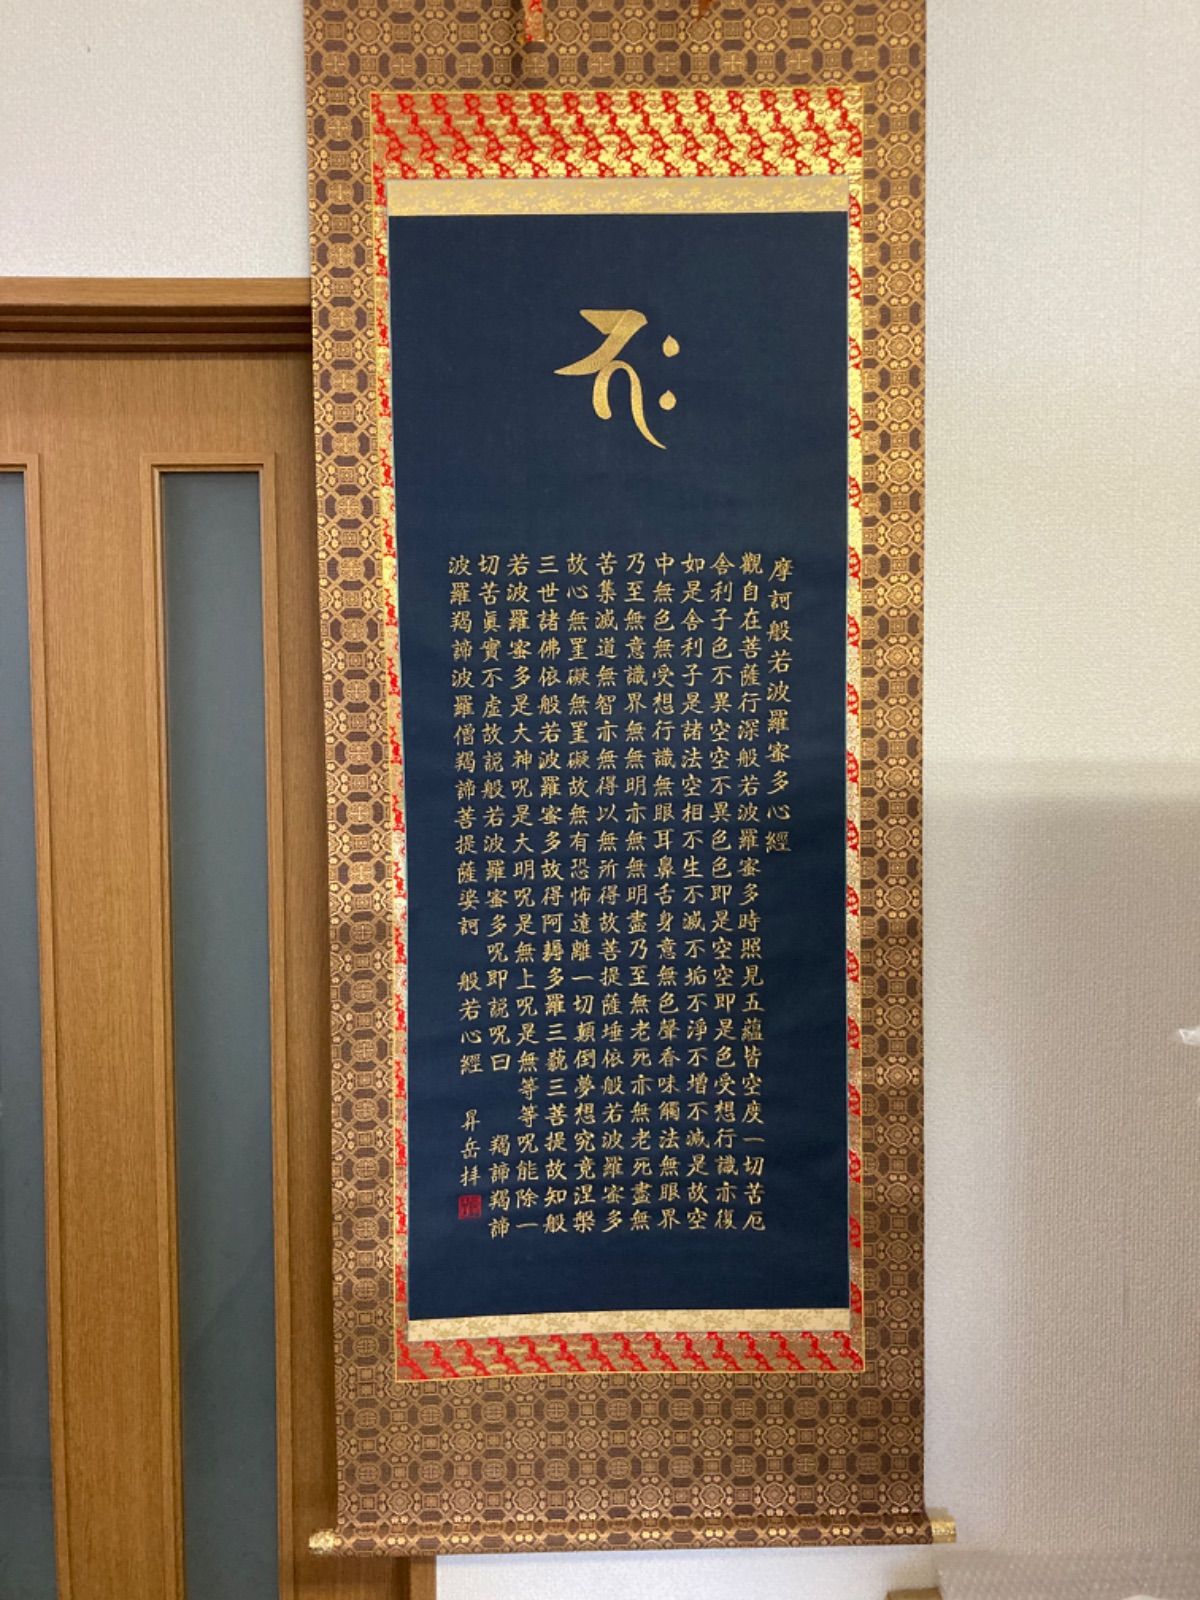 𑖥𑖾
摩訶般若波羅蜜多心經
觀自在菩薩行深般若波羅蜜多時照見五蘊皆空度一切苦厄
舍利子色不異空空不異色色即是空空即是色受想行識亦復
如是舍利子是諸法空相不生不滅不垢不淨不增不減是故空
中無色無受想行識無眼耳鼻舌身意無色聲香味觸法無眼界
乃至無意識界無無明亦無無明盡乃至無老死亦無老死盡無
苦集滅道無智亦無得以無所得故菩提薩埵依般若波羅蜜多
故心無罣礙無罣礙故無有恐怖遠離一切顛倒夢想究竟涅槃
三世諸佛依般若波羅蜜多故得阿耨多羅三藐三菩提故知般
若波羅蜜多是大神呪是大明呪是無上呪是無等等呪能除一
切苦眞實不虛故説般若波羅蜜多呪即説呪曰 羯諦羯諦
波羅羯諦波羅僧羯諦菩提薩婆訶 般若心經 昇岳拝